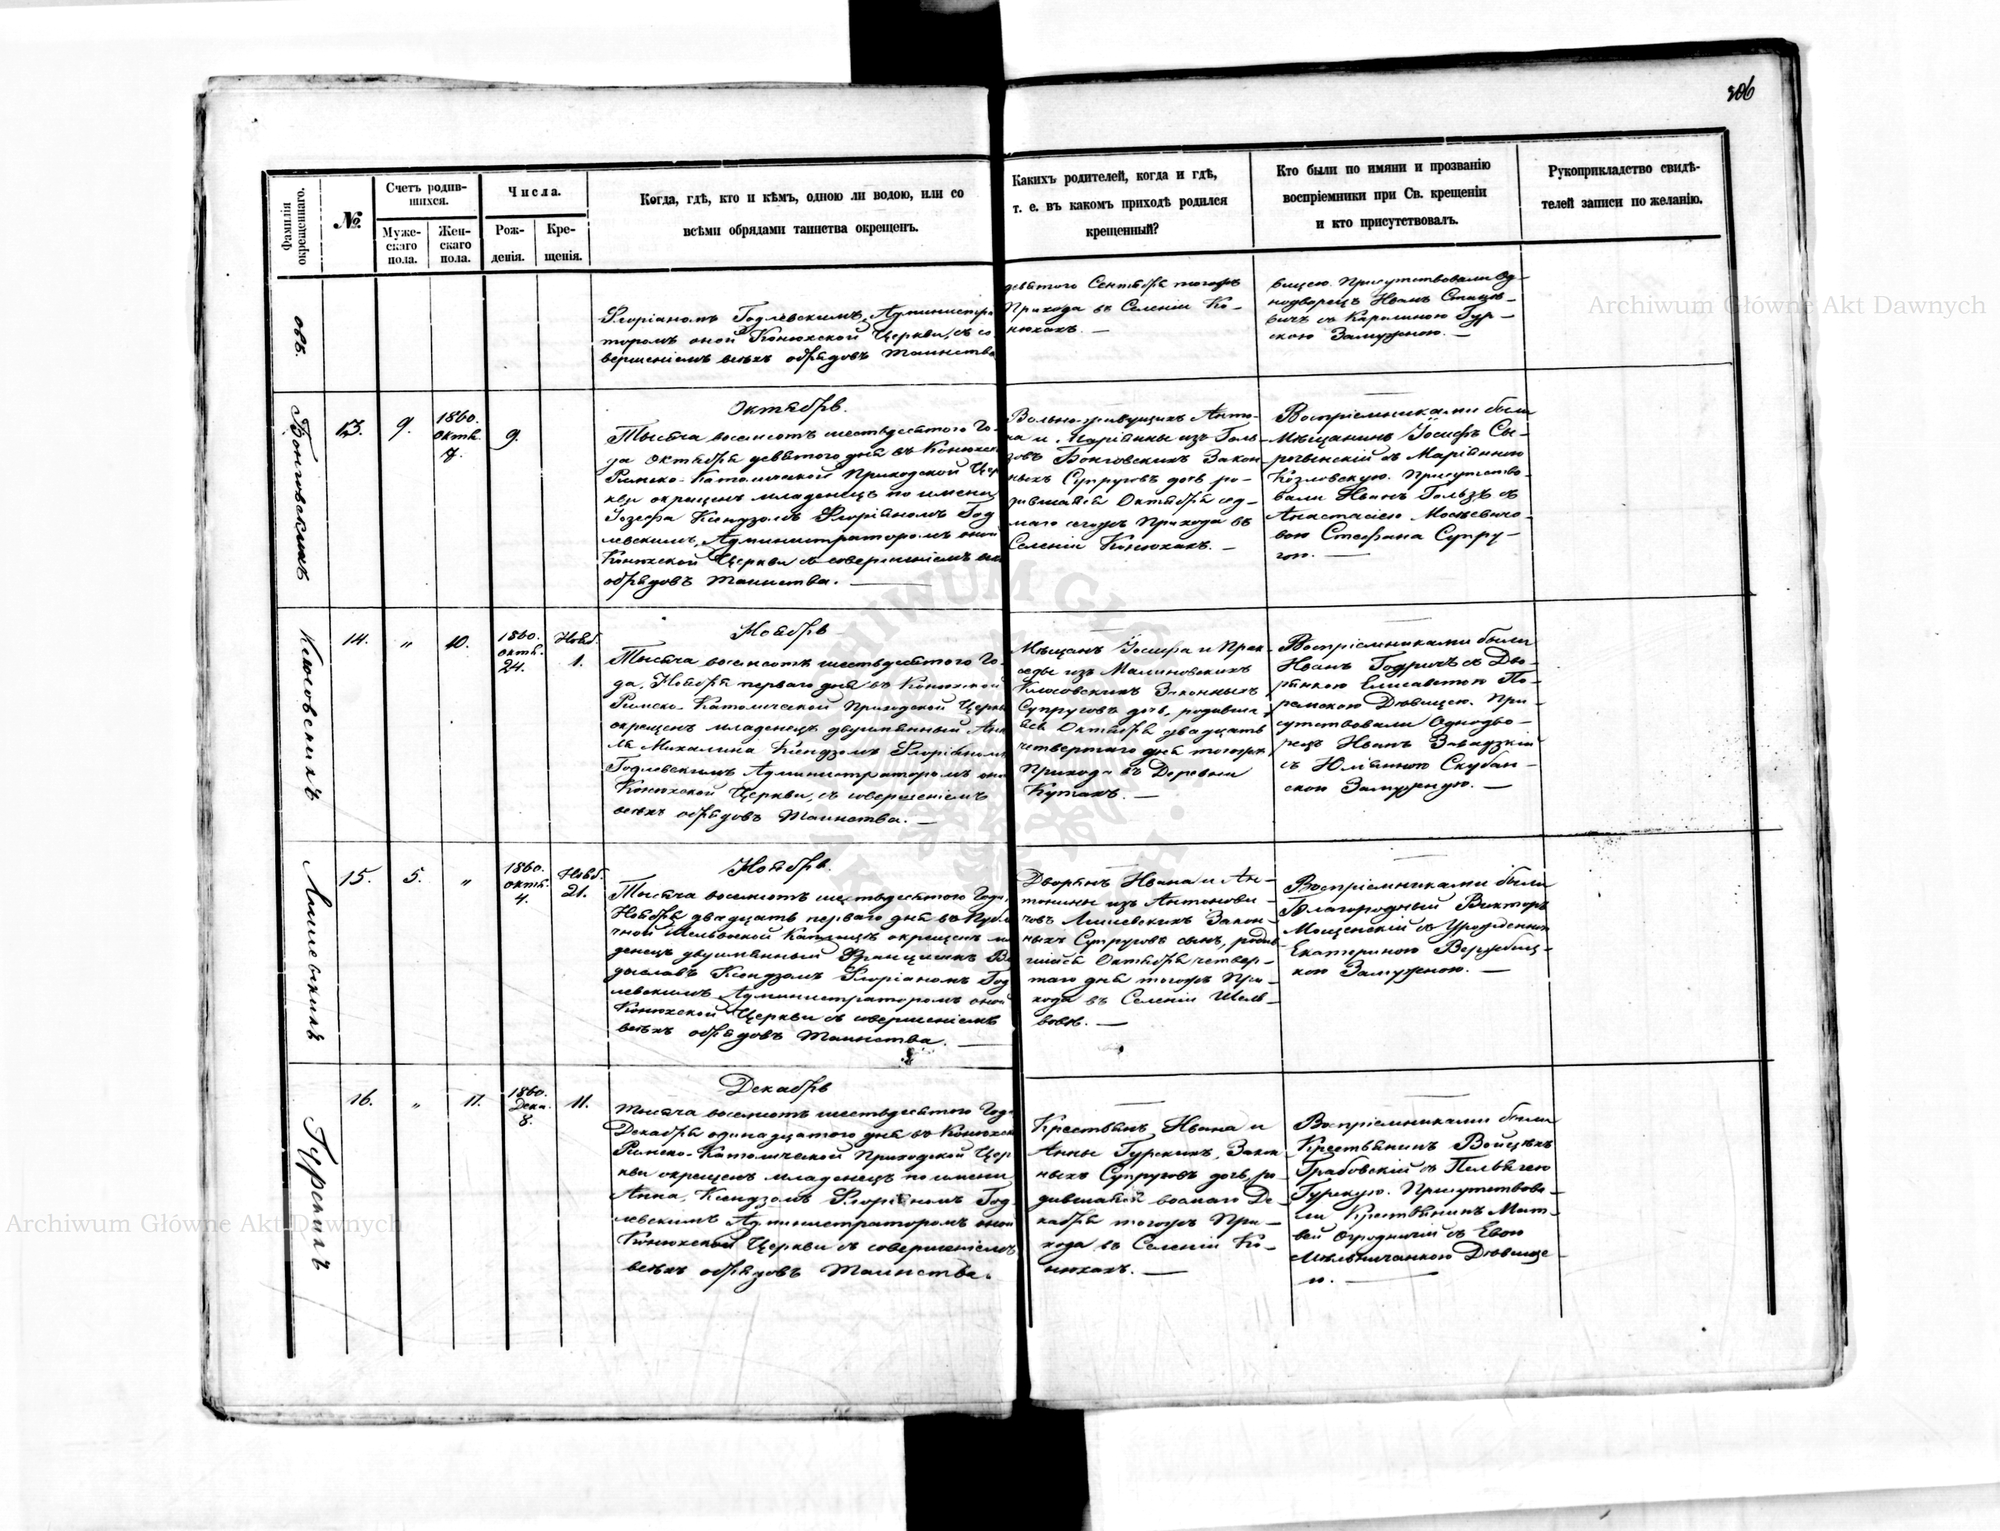 306
Фамилія окрещеннаго.
№.
Счетъ родив-
шихся.
Муже-
скаго
пола.
Жен-
скаго
пола.
Числа.
Рож-
денія.
Кре-
щенія.
Когда, гдѣ, кто и кѣмъ, одною ли водою, или со
всѣми обрядами таинства окрещенъ.
Какихъ родителей, когда и гдѣ,
т. е. въ какомъ приходѣ родился
крещенный?
Кто были по имяни и прозванію
воспріемники при Св. крещеніи
и кто присутствовалъ.
Рукоприкладство свидѣ-
телей записи по желанію.
овъ.
Флоріаномъ Годлевскимъ, Администра
торомъ оной Конюхской Церкви, съ со
вершеніемъ всѣхъ обрядовъ Таинства
девятого Сентября тогожъ
Прихода въ Селеніи Ко-
нюхахъ. —
вицею. Присутствовали Од-
нодворецъ Иванъ
съ Каролиною Гур-
скою Замужною. —
Бонговскихъ
13.
9.
1860.
Октяб.
7.
9.
Октябрь.
Тысяча восемсотъ шестьдесятого Го-
да Октября девятого дня въ Конюхск
Римско-Католической Приходской Цер
кви окрещенъ младенецъ по имени
Іозефа Ксендзомъ Флоріаномъ Год
левскимъ, Администраторомъ оной
Конюхской Церкви съ совершеніемъ
обрядовъ Таинства. —
Вольно-живущихъ Анто-
на и Маріянны изъ Голь-
зовъ Бонговскихъ Закон-
ныхъ Супруговъ дочь ро-
дившаяся Октября сед-
маго сегожъ Прихода въ
Селеніи Конюхахъ. —
Воспріемниками были
Мѣщанинъ Іосифъ
съ Маріянною
Козловскую. Присутство-
вали Иванъ Гользъ съ
Анастасіею
Стефана Супру-
гою. —
14.
"
10.
1860.
Октяб.
24.
Нояб.
1.
Ноябрь
Тысяча восемсотъ шестьдесятого Го-
да, Ноября перваго дня въ Конюхской
Римско-Католической Приходской Церкв
окрещенъ младенецъ двуимянный
Михалина Ксендзомъ Флоріаномъ
Годлевскимъ Администраторомъ оной
Конюхской Церкви, съ совершеніемъ
всѣхъ обрядовъ Таинства. —
Мѣщанъ Іосифа и
изъ Малиновскихъ
Законныхъ
Супруговъ дочь, родивша-
яся Октября двадцать
четвертаго дня тогожъ
Прихода въ Деревни
Кутахъ. —
Воспріемниками были
Иванъ съ Дво-
рянкою Елисаветою
Дѣвицею. При-
сутствовали Однодво-
рецъ Иванъ Завадзкій
съ Юліянною Скубан-
скою Замужную. —
15.
5.
"
1860.
Октяб.
4.
Нояб.
21.
Ноябрь.
Тысяча восемсотъ шестьдесятого Года,
Ноября двадцать перваго дня въ
Шельвовской Каплицѣ окрещенъ мла
денецъ двуимянный Францишекъ
Ксендзомъ Флоріаномъ Год
левскимъ Администраторомъ оной
Конюхской Церкви съ совершеніемъ
всѣхъ обрядовъ Таинства. —
Дворянъ Ивана и Ан-
тонины изъ Антонови-
човъ Закон-
ныхъ Супруговъ сынъ, родив-
шійся Октября четвер-
таго дня тогожъ При-
хода въ Селеніи Шель-
вовѣ. —
Воспріемниками были
Благородный Викторъ
съ Урожденною
Екатериною
Замужною. —
Гурскихъ
16.
"
11.
1860.
Дека.
8.
11.
Декабрь
Тысяча восемсотъ шестьдесятого Года
Декабря одинадцатого дня въ Конюхск
Римско-Католической Приходской Цер
кви окрещенъ младенецъ по имени
Анна, Ксендзомъ Флоріяномъ Год
левскимъ Администраторомъ оной
Конюхской Церкви съ совершеніемъ
всѣхъ обрядовъ Таинства.
Крестьянъ Ивана и
Анны Гурскихъ, Закон
ныхъ Супруговъ дочь, ро-
дившаяся восмаго Де-
кабря тогожъ При-
хода въ Селеніи Ко-
нюхахъ. —
Воспріемниками были
Крестьянинъ Войцѣхъ
Грабовскій съ Пелягею
Гурскую. Присутствова-
ли Крестьянинъ Мат-
вей Огродничій съ Евою
Мельничанкою Дѣвице
ю. —
Archiwum Główne Akt Dawnych
Archiwum Główne Akt Dawnych